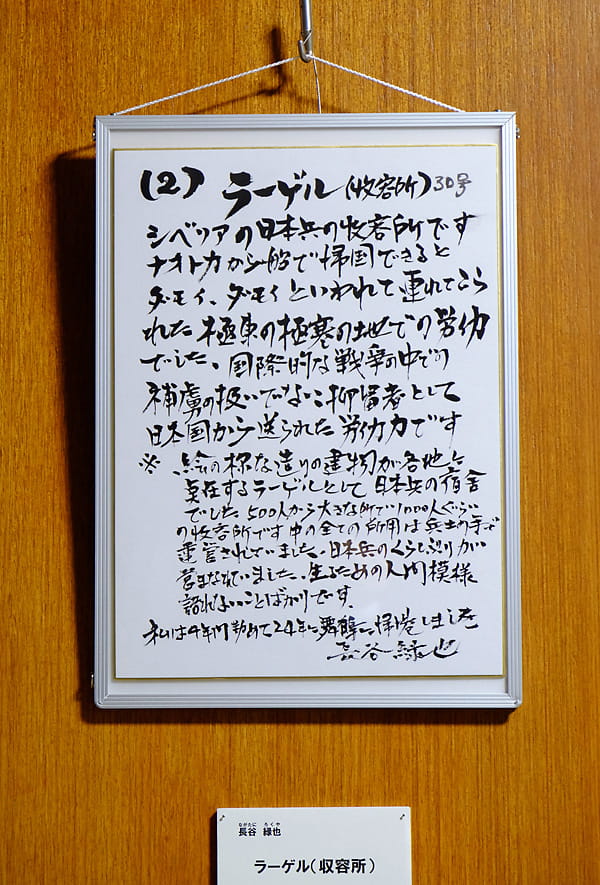 (2) ラーゲル(收容所)30号
シベリアの日本兵の收容所です
ナオトカから船で帰国できると
ダモイ、ダモイといわれて連れてこら
れた極東の極寒の地での労仂
でした、国際的な戦争の中での
補虜の扱いでない抑留者として
日本国から送られた労仂力です
※ 絵の様な造りの建物が各地に
点在するラーゲルとして日本兵の宿舎
でした 500人から大きな所で1000人ぐらい
の收容所です 中の全ての所用は兵士の手で
運営されていました、日本兵のくらしぶりが
営まれていました、生るための人間模様
語れないことばかりです、
私は4年間勤めて24年に舞鶴に帰港しました
長谷 緑也
ながたに ろくや
長谷 緑也
ラーゲル(収容所)